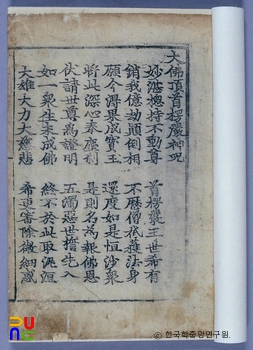 大佛頂首楞嚴神呪
妙湛總持不動尊 首楞嚴王世希有
銷我億劫顛倒想 不歷僧祇獲法身
願今得果成寶王 還度如是恒沙衆
將此深心奉塵刹 是則名爲報佛恩
伏請世尊爲證明 五濁惡世誓先入
如一衆生未成佛 終不於此取泥洹
大雄大力大慈悲 希更審除微細惑
© 한국학중앙연구원